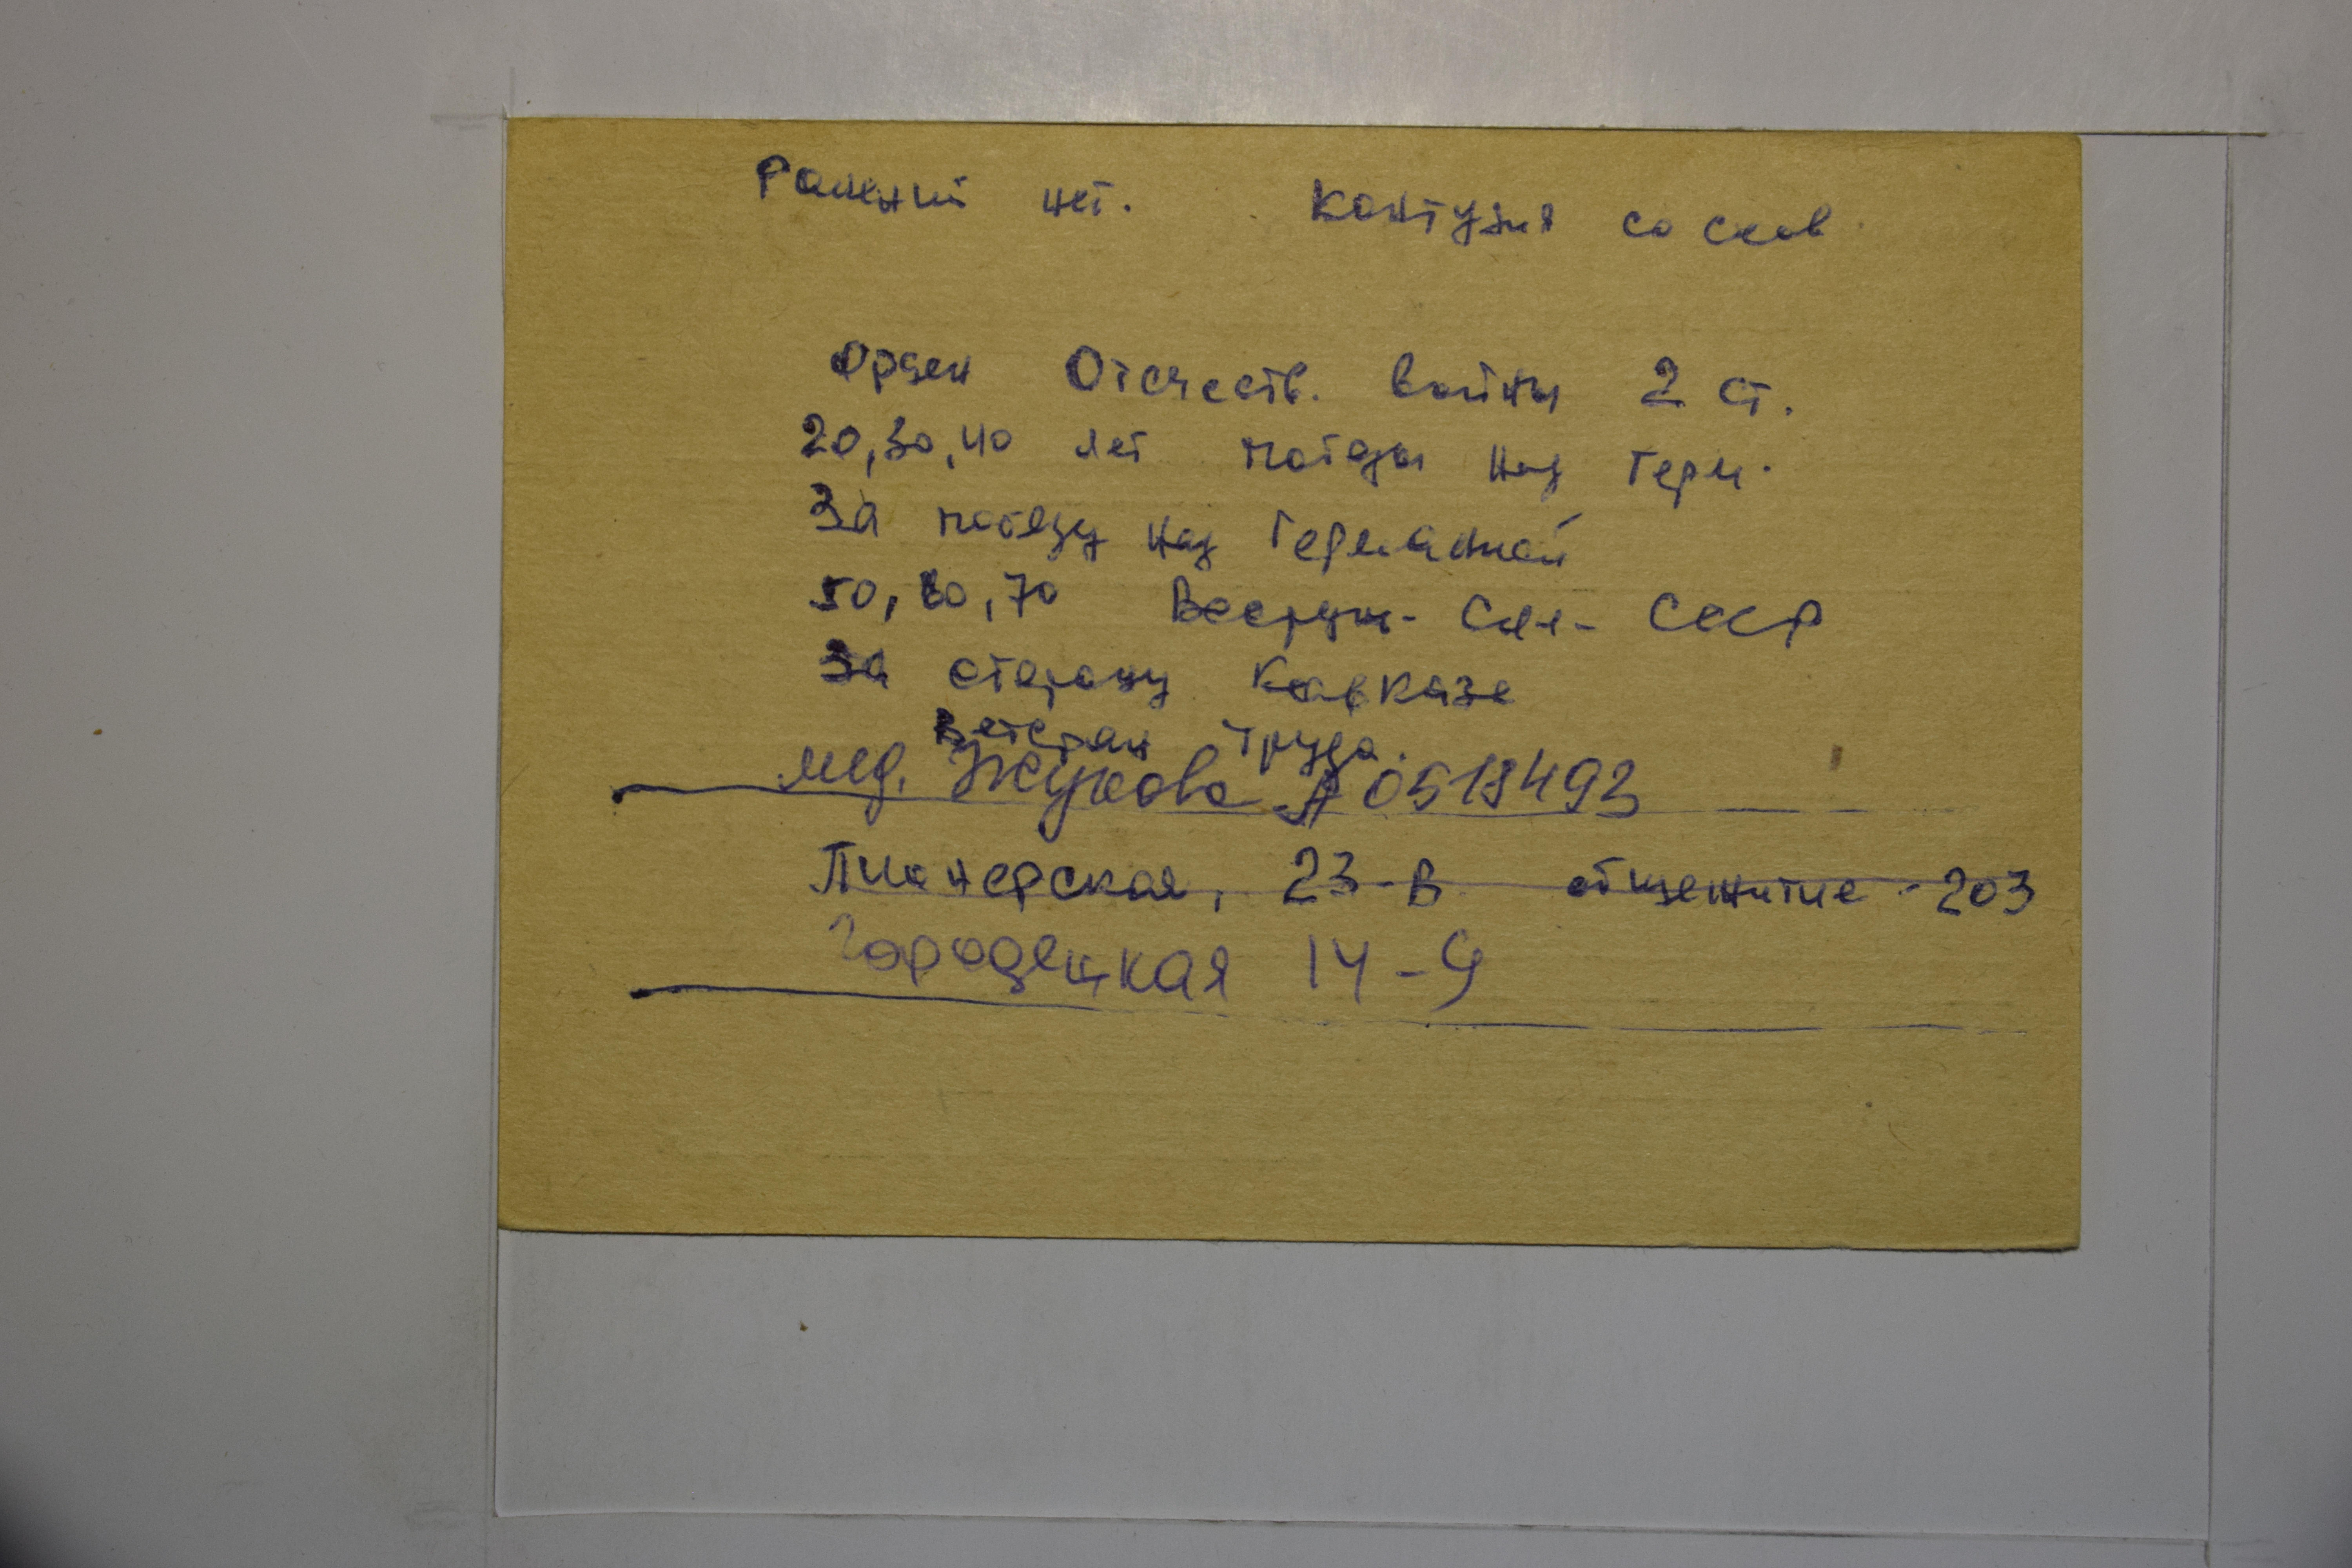 Ранений нет. Контузия со слов
Орден Отечеств. войны 2 ст.
20, 30, 40 лет победы над Герм.
За победу над Германией
50, 60, 70 Вооруж. Сил СССР
За оборону Кавказа
Ветеран труда.
мед. Жукова А 0518493
Пионерская, 23-в общежитие - 203
Городецкая 14-9